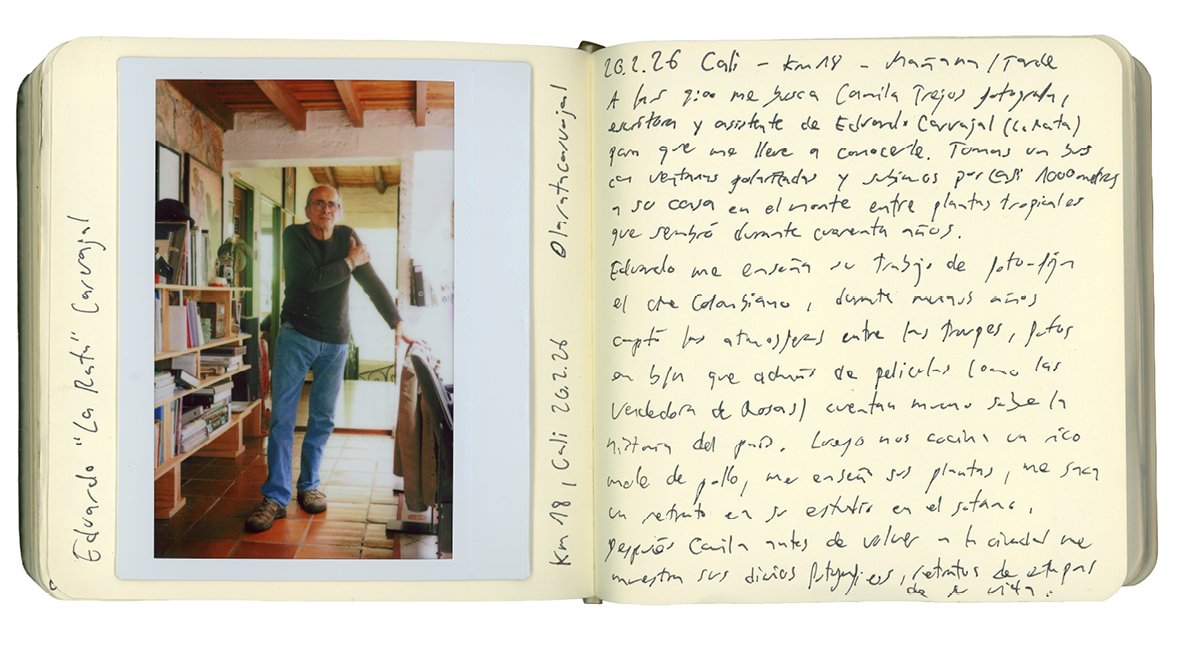 Eduardo "La Rata" Carvajal
Km 18, Cali 26.2.26 @laratacarvajal
26.2.26 Cali - Km 18 - Mañana/Tarde
A las 9:00 me busca Camila Trejos fotografa,
escritora y asistente de Eduardo Carvajal (La Rata)
para que me lleve a conocerle. Tomas un bus
con ventanas polarizadas y subimos por casi 1000 metros
a su casa en el monte entre plantas tropicales
que sembró durante cuarenta años.
Eduardo me enseña su trabajo de foto-fija
el cine Colombiano, durante muchos años
captó las atmosferas entre las troupes, fotos
en b/n que además de peliculas (como las
Vendedora de Rosas) cuentan mucho sobre la
historia del país. Luego nos cocina un rico
mole de pollo, me enseña sus plantas, me saca
un retrato en su estudio en el sotano.
Después Camila antes de volver a la ciudad me
muestra sus diarios fotograficos, retratos de etapas
de su vida.